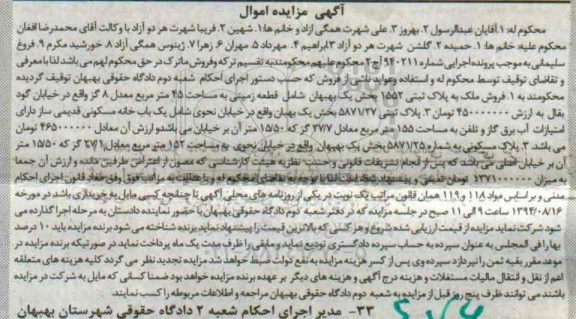 آگهی مزایده اموال
محکوم له: ۱. آقایان عبدالرسول ۲. بهروز ۳. علی شهرت همگی آزاد و خانم ها: ۱. شهین ۲. فریبا شهرت هر دو آزاد با وکالت آقای محمدرضا افغان
محکوم علیه: خانم ها: ۱. حمیده ۲. گلشن شهرت هر دو آزاد ۳. ابراهیم ۴. مهرداد ۵. مهران ۶. زهرا ۷. ژینوس همگی آزاد ۸. خورشید مکرم ۹. فروغ
سلیمانی به موجب پرونده اجرایی شماره ۹۴۰۲۱۱ آج ۲ محکوم علیهم محکومند به تقسیم ترکه و فروش ماترک در حق محکوم لهم می باشد لذا با معرفی
و تقاضای توقیف توسط محکوم له و استفاده و عواید ناشی از فروش که حسب دستور اجرای احکام شعبه دوم دادگاه حقوقی بهبهان توقیف گردیده
محکومند به ۱. فروش ملک به پلاک ثبتی ۱۵۵۲ بخش یک بهبهان شامل قطعه زمینی به مساحت ۴۵ متر مربع معادل ۸ گز واقع در خیابان گود
بقال به ارزش ۴۵۰۰۰۰۰۰ تومان ۲. پلاک ثبتی ۵۸۷۱/۲۷ بخش یک بهبهان واقع در خیابان نحوی شامل یک باب خانه مسکونی قدیمی ساز دارای
امتیازات آب برق گاز و تلفن به مساحت ۱۵۵ متر مربع معادل ۲۷/۷ گز که ۱۵/۵۰ متر آن بر خیابان می باشد و ارزش آن معادل ۴۶۵۰۰۰۰۰۰ تومان
می باشد ۳. پلاک مسکونی به شماره ۵۸۷۱/۲۵ بخش یک بهبهان واقع در خیابان نحوی به مساحت ۱۵۲ متر مربع معادل ۲۷/۱ گز که ۱۵/۵۰ متر
آن بر خیابان اصلی می باشد که پس از انجام تشریفات قانونی و حسب نظریه هیئت کارشناسی که مصون از اعتراض طرفین مانده و ارزش آن جمعا
به میزان ۱۳۷۱۰۰۰۰۰۰ تومان
مدنی و بر اساس مواد ۱۱۸ و ۱۱۹ همان قانون مراتب یک نوبت در یکی از روزنامه های محلی آگهی تا چنانچه کسی مایل به خریداری باشد در مورخه
۱۳۹۴/۰۸/۱۶ ساعت ۹ الی ۱۱ صبح در جلسه مزایده که در دفتر شعبه دوم دادگاه حقوقی بهبهان با حضور نماینده دادستان به مرحله اجرا گذارده می
شود شرکت نماید مزایده از قیمت ارزیابی شده شروع و هر کسی که بالاترین قیمت را پیشنهاد نماید برنده شناخته می شود برنده مزایده باید ۱۰ درصد
بها را فی المجلس به عنوان سپرده به حساب سپرده دادگستری تودیع نماید و مابقی را ظرف مدت یک ماه پرداخت نماید در صورتیکه برنده مزایده در
موعد مقرر بقیه ثمن را نپردازد سپرده وی پس از کسر هزینه مزایده به نفع دولت ضبط خواهد شد مزایده تجدید نظر می گردد کلیه هزینه های متعلقه
اعم از نقل و انتقال مالیات مستغلات و هزینه درج آگهی و هزینه های دیگر بر عهده برنده مزایده خواهد بود ضمنا کسانی که مایل به شرکت در مزایده
باشند می توانند ظرف پنج روز قبل از مزایده به شعبه دوم دادگاه حقوقی بهبهان مراجعه و اطلاعات مربوطه را کسب نمایند.
۳۳- مدیر اجرای احکام شعبه ۲ دادگاه حقوقی شهرستان بهبهان